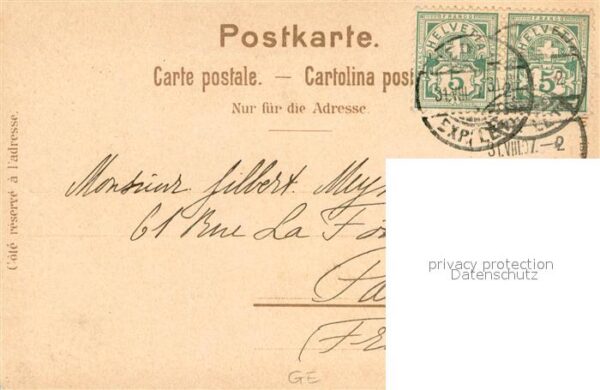 Postkarte.
Carte postale. — Cartolina post
Nur für die Adresse.
Côté réservé à l'adresse.
FRANCO FRANCO
HELVETIA HELVETIA
5 5
31.VIII.
EXP. LET
31.VIII.97.–2
Monsieur Gilbert Mey
61 Rue La Fon
Pa
(Fr
GE
privacy protection
Datenschutz